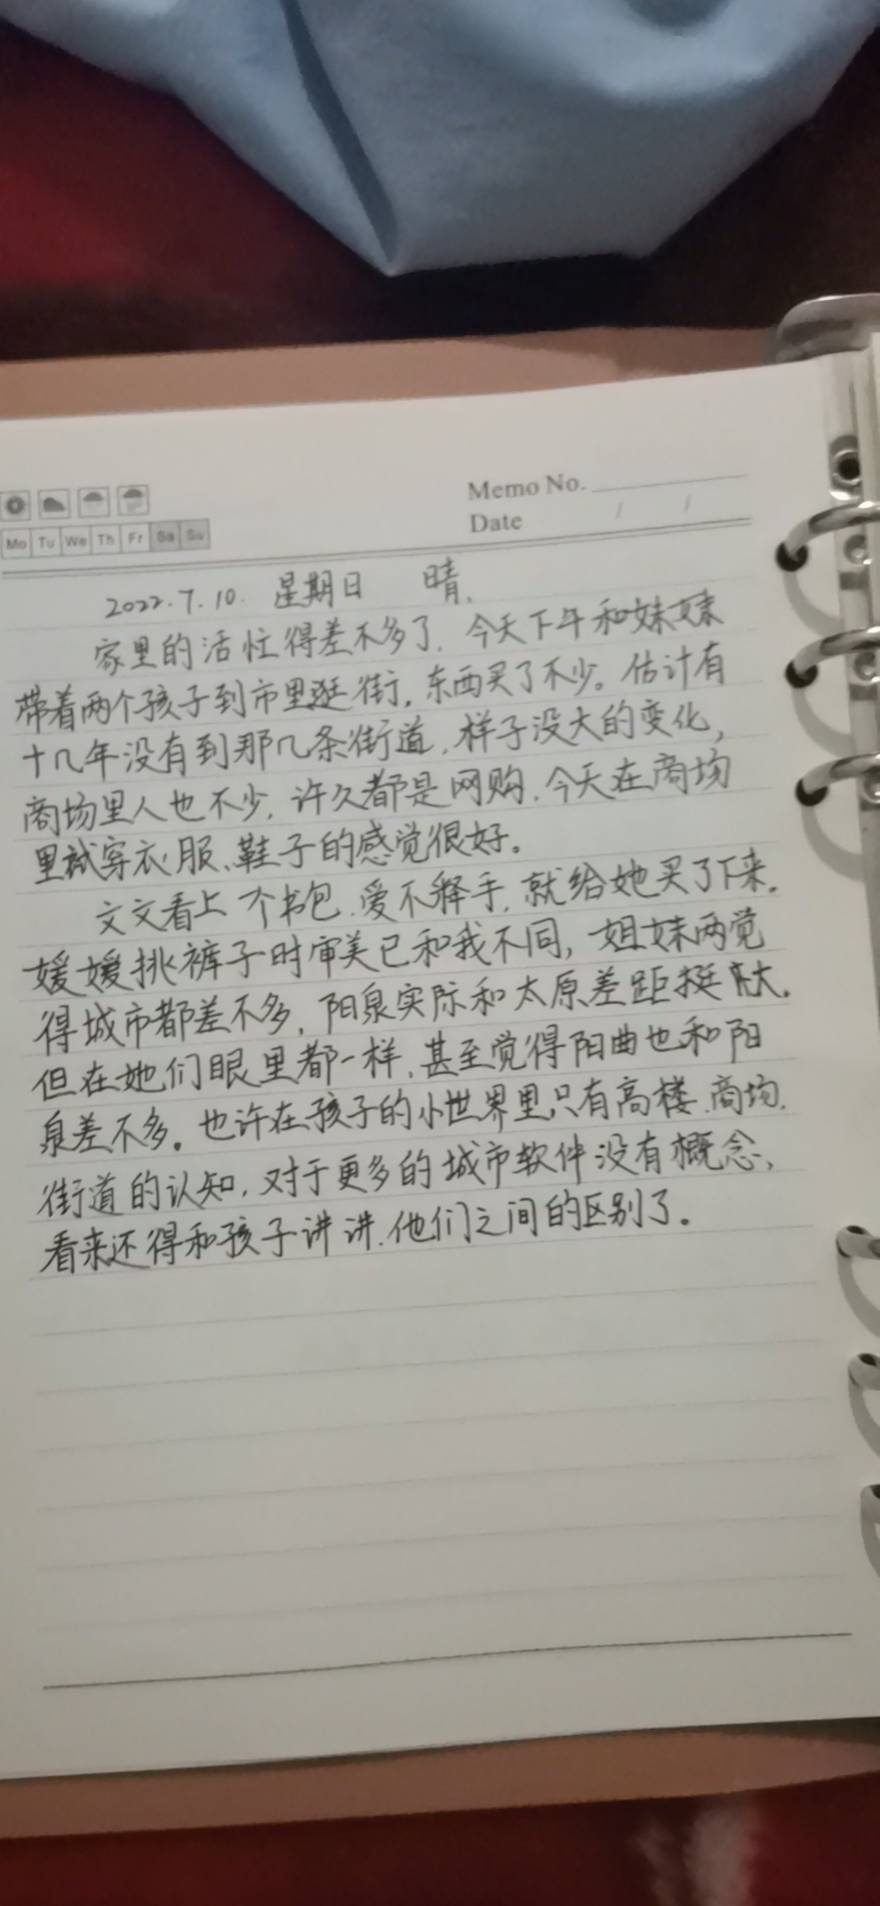 Memo No.
Date / /
Mo Tu We Th Fr Sa Su
2022.7.10. 星期日 晴.
家里的活忙得差不多了.今天下午和妹妹
带着两个孩子到市里逛街,东西买了不少。估计有
十几年没有到那几条街道,样子没大的变化,
商场里人也不少,许久都是网购.今天在商场
里试穿衣服、鞋子的感觉很好。
文文看上个书包.爱不释手,就给她买了下来.
媛媛挑裤子时审美已和我不同,姐妹两觉
得城市都差不多,阳泉实际和太原差距挺大.
但在她们眼里都一样,甚至觉得阳曲也和阳
泉差不多。也许在孩子的小世界里只有高楼.商场.
街道的认知,对于更多的城市软件没有概念、
看来还得和孩子讲讲.他们之间的区别了。